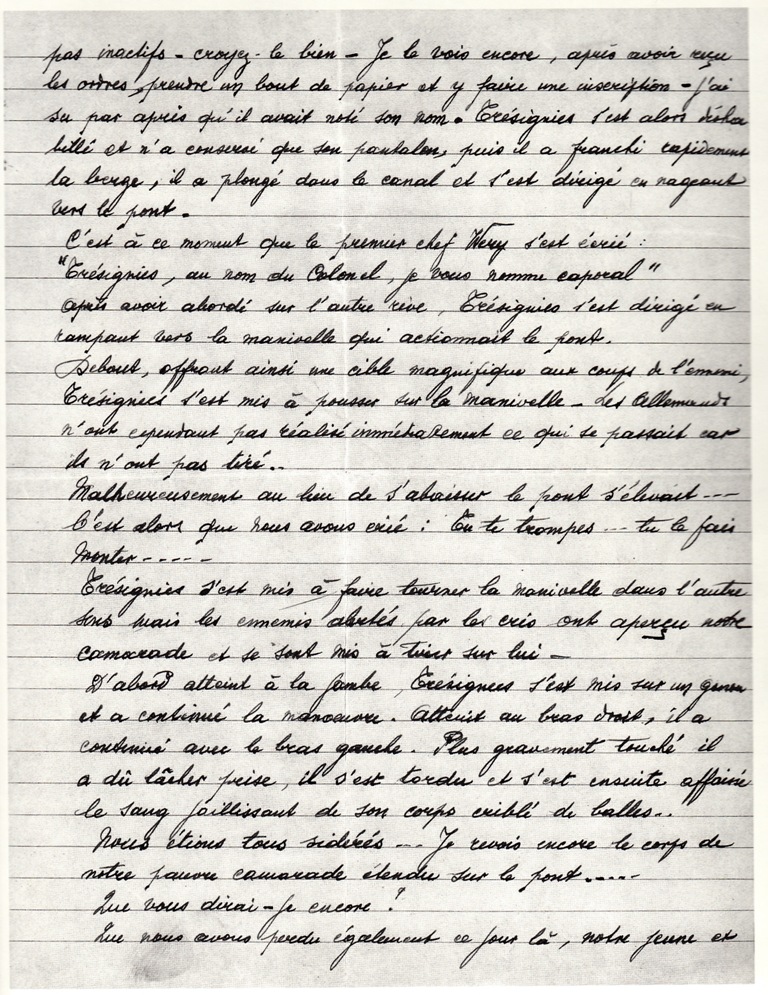 pas inactifs - croyez-le bien - Je le vois encore, après avoir reçu
les ordres, prendre un bout de papier et y faire une inscription - J'ai
su par après qu'il avait noté son nom. Trésignies s'est alors désha
billé et n'a conservé que son pantalon, puis il a franchi rapidement
la berge, il a plongé dans le canal et s'est dirigé en nageant
vers le pont.
C'est à ce moment que le premier chef Wery s'est écrié :
"Trésignies, au nom du Colonel, je vous nomme caporal"
Après avoir abordé sur l'autre rive, Trésignies s'est dirigé en
rampant vers la manivelle qui actionnait le pont.
Debout, offrant ainsi une cible magnifique aux coups de l'ennemi,
Trésignies s'est mis à pousser sur la manivelle - Les Allemands
n'ont cependant pas réalisé immédiatement ce qui se passait car
ils n'ont pas tiré..
Malheureusement au lieu de s'abaisser le pont s'élevait ---
C'est alors que nous avons crié : Tu te trompes --- tu le fais
monter -----
Trésignies s'est mis à faire tourner la manivelle dans l'autre
sens mais les ennemis alertés par les cris ont aperçu notre
camarade et se sont mis à tirer sur lui -
D'abord atteint à la jambe, Trésignies s'est mis sur un genou
et a continué la manoeuvre. Atteint au bras droit, il a
continué avec le bras gauche. Plus gravement touché il
a dû lâcher prise, il s'est tordu et s'est ensuite affaissé
le sang jaillissant de son corps criblé de balles..
Nous étions tous sidérés --- Je revois encore le corps de
notre pauvre camarade étendu sur le pont.----
Que vous dirai-je encore ?
Que nous avons perdu également ce jour là, notre jeune et